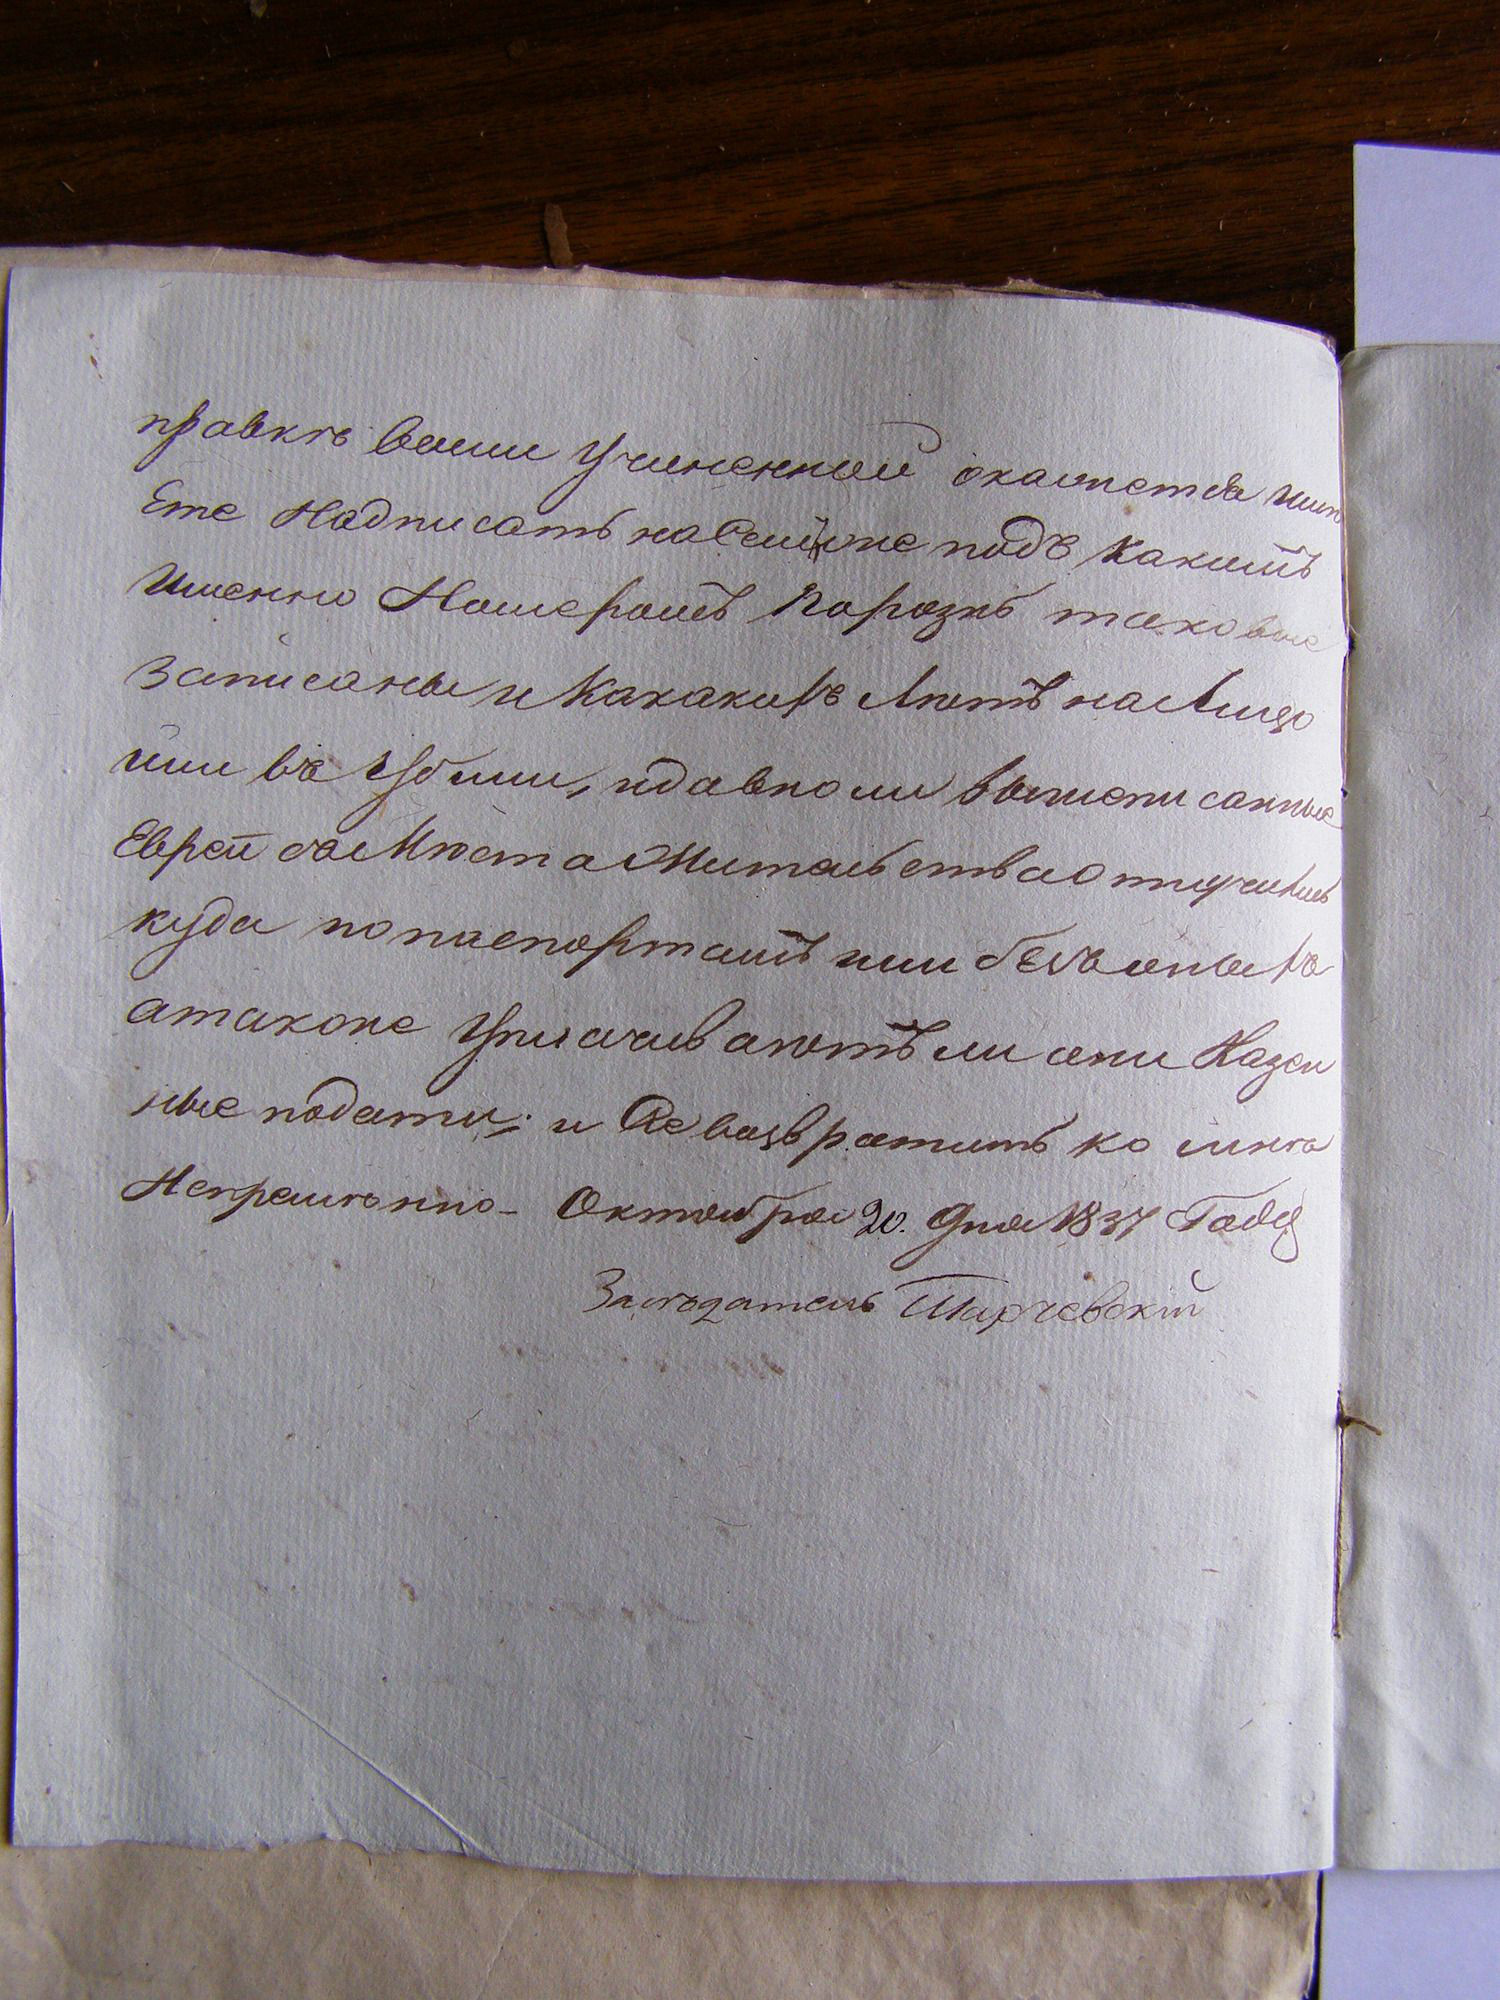 правкѣ вами учиненной окажется имъ
Еже Надписать на Семъ же подъ какимъ
именно Номеромъ порознь таковые
записаны и какихъ лѣтъ на лицо
или въ убыли, и давно ли вышеписанные
Евреи съ Мѣста Жительства отлучились
куда по паспортамъ или безъ оныхъ
а также уплачивають ли они Казен
ные подати; и Се возвратить ко мнѣ
Непремѣнно - Октября 20. Дня 1837 Года
Засѣдатель